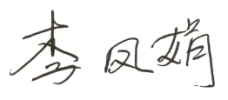 李凤娟